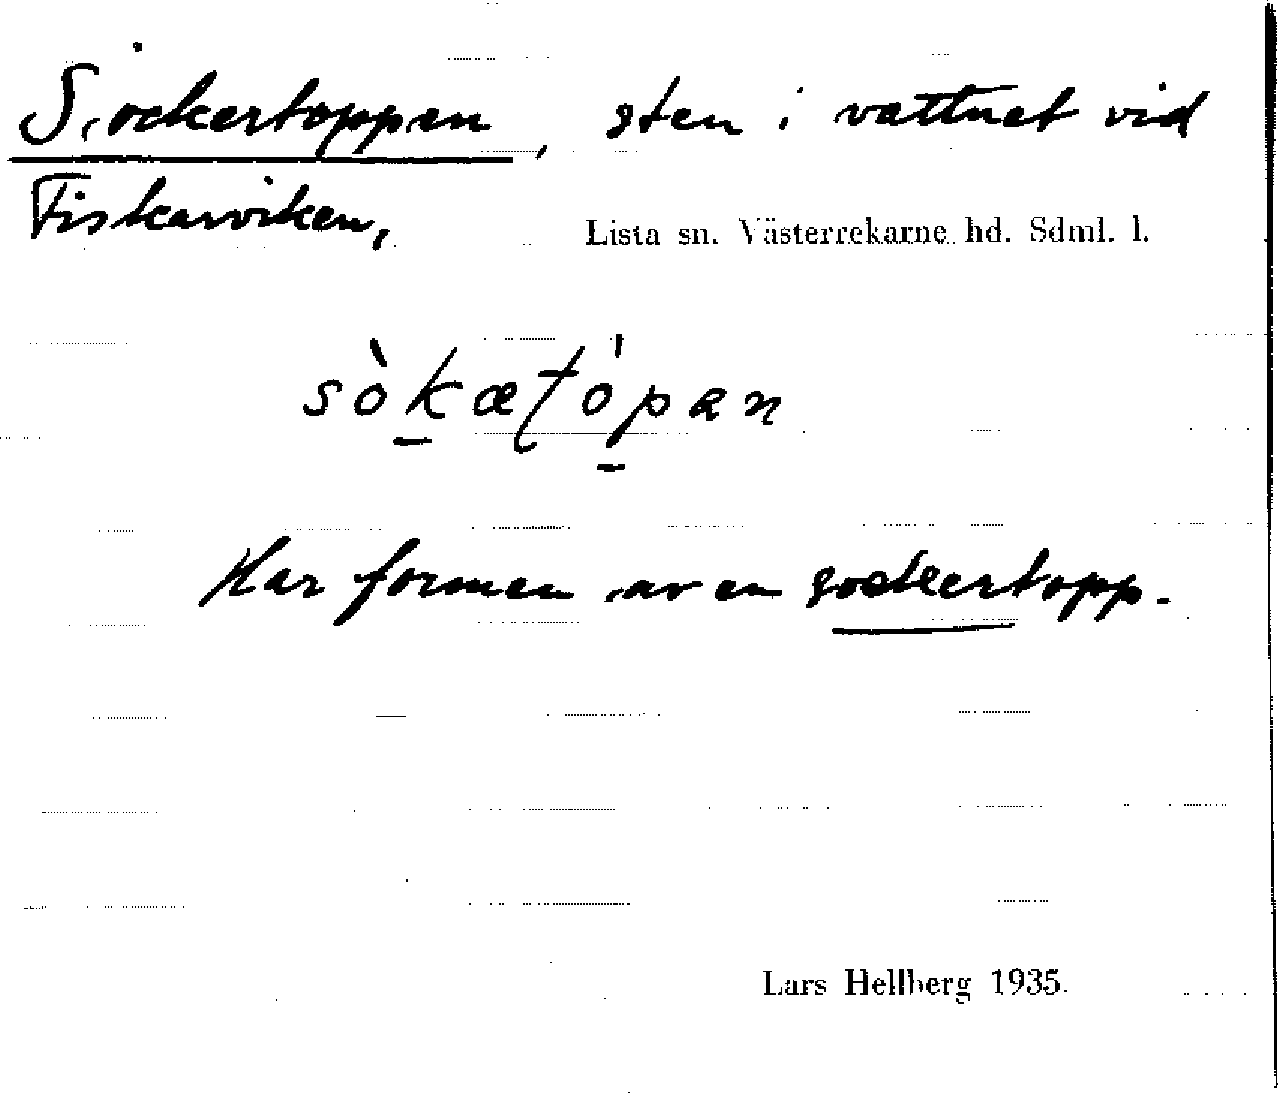 Sockertoppen, sten i vattnet vid
Fiskarviken,
Lista sn. Västerrekarne hd. Sdml. l.
sòkætópan
Har formen av en sockertopp.
Lars Hellberg 1935.